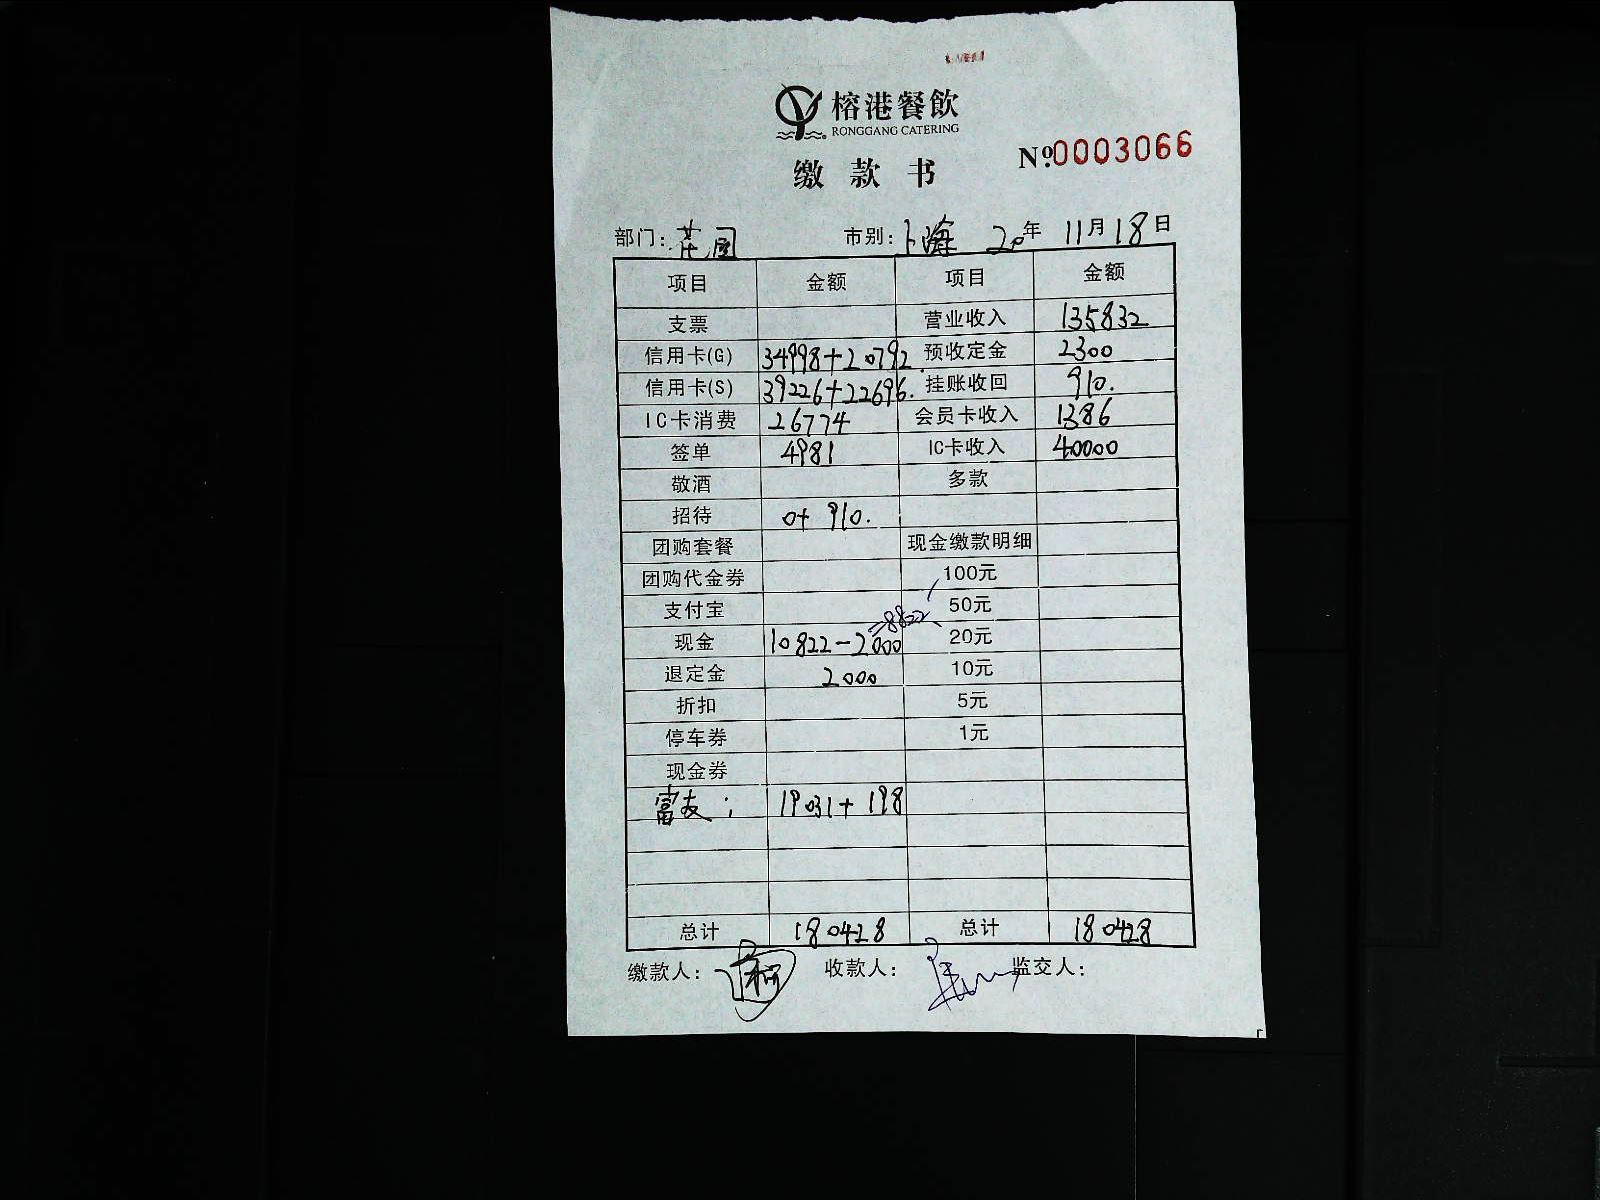 榕港餐飲
RONGGANG CATERING
缴款书
№0003066
部门: 市别:上海 20年 11月18日
项目 金额 项目 金额
支票 营业收入 135832
信用卡(G) 34998+20792 预收定金 2300
信用卡(S) 39226+22696. 挂账收回 910.
IC卡消费 26774 会员卡收入 1386
签单 4981 IC卡收入 40000
敬酒 多款
招待 0+ 910.
团购套餐 现金缴款明细
团购代金券 100元
支付宝 50元
=8822
现金 10822-2000 20元
退定金 2000 10元
折扣 5元
停车券 1元
现金券
富友: 19031+198
总计 180428 总计 180428
缴款人: 收款人: 监交人: